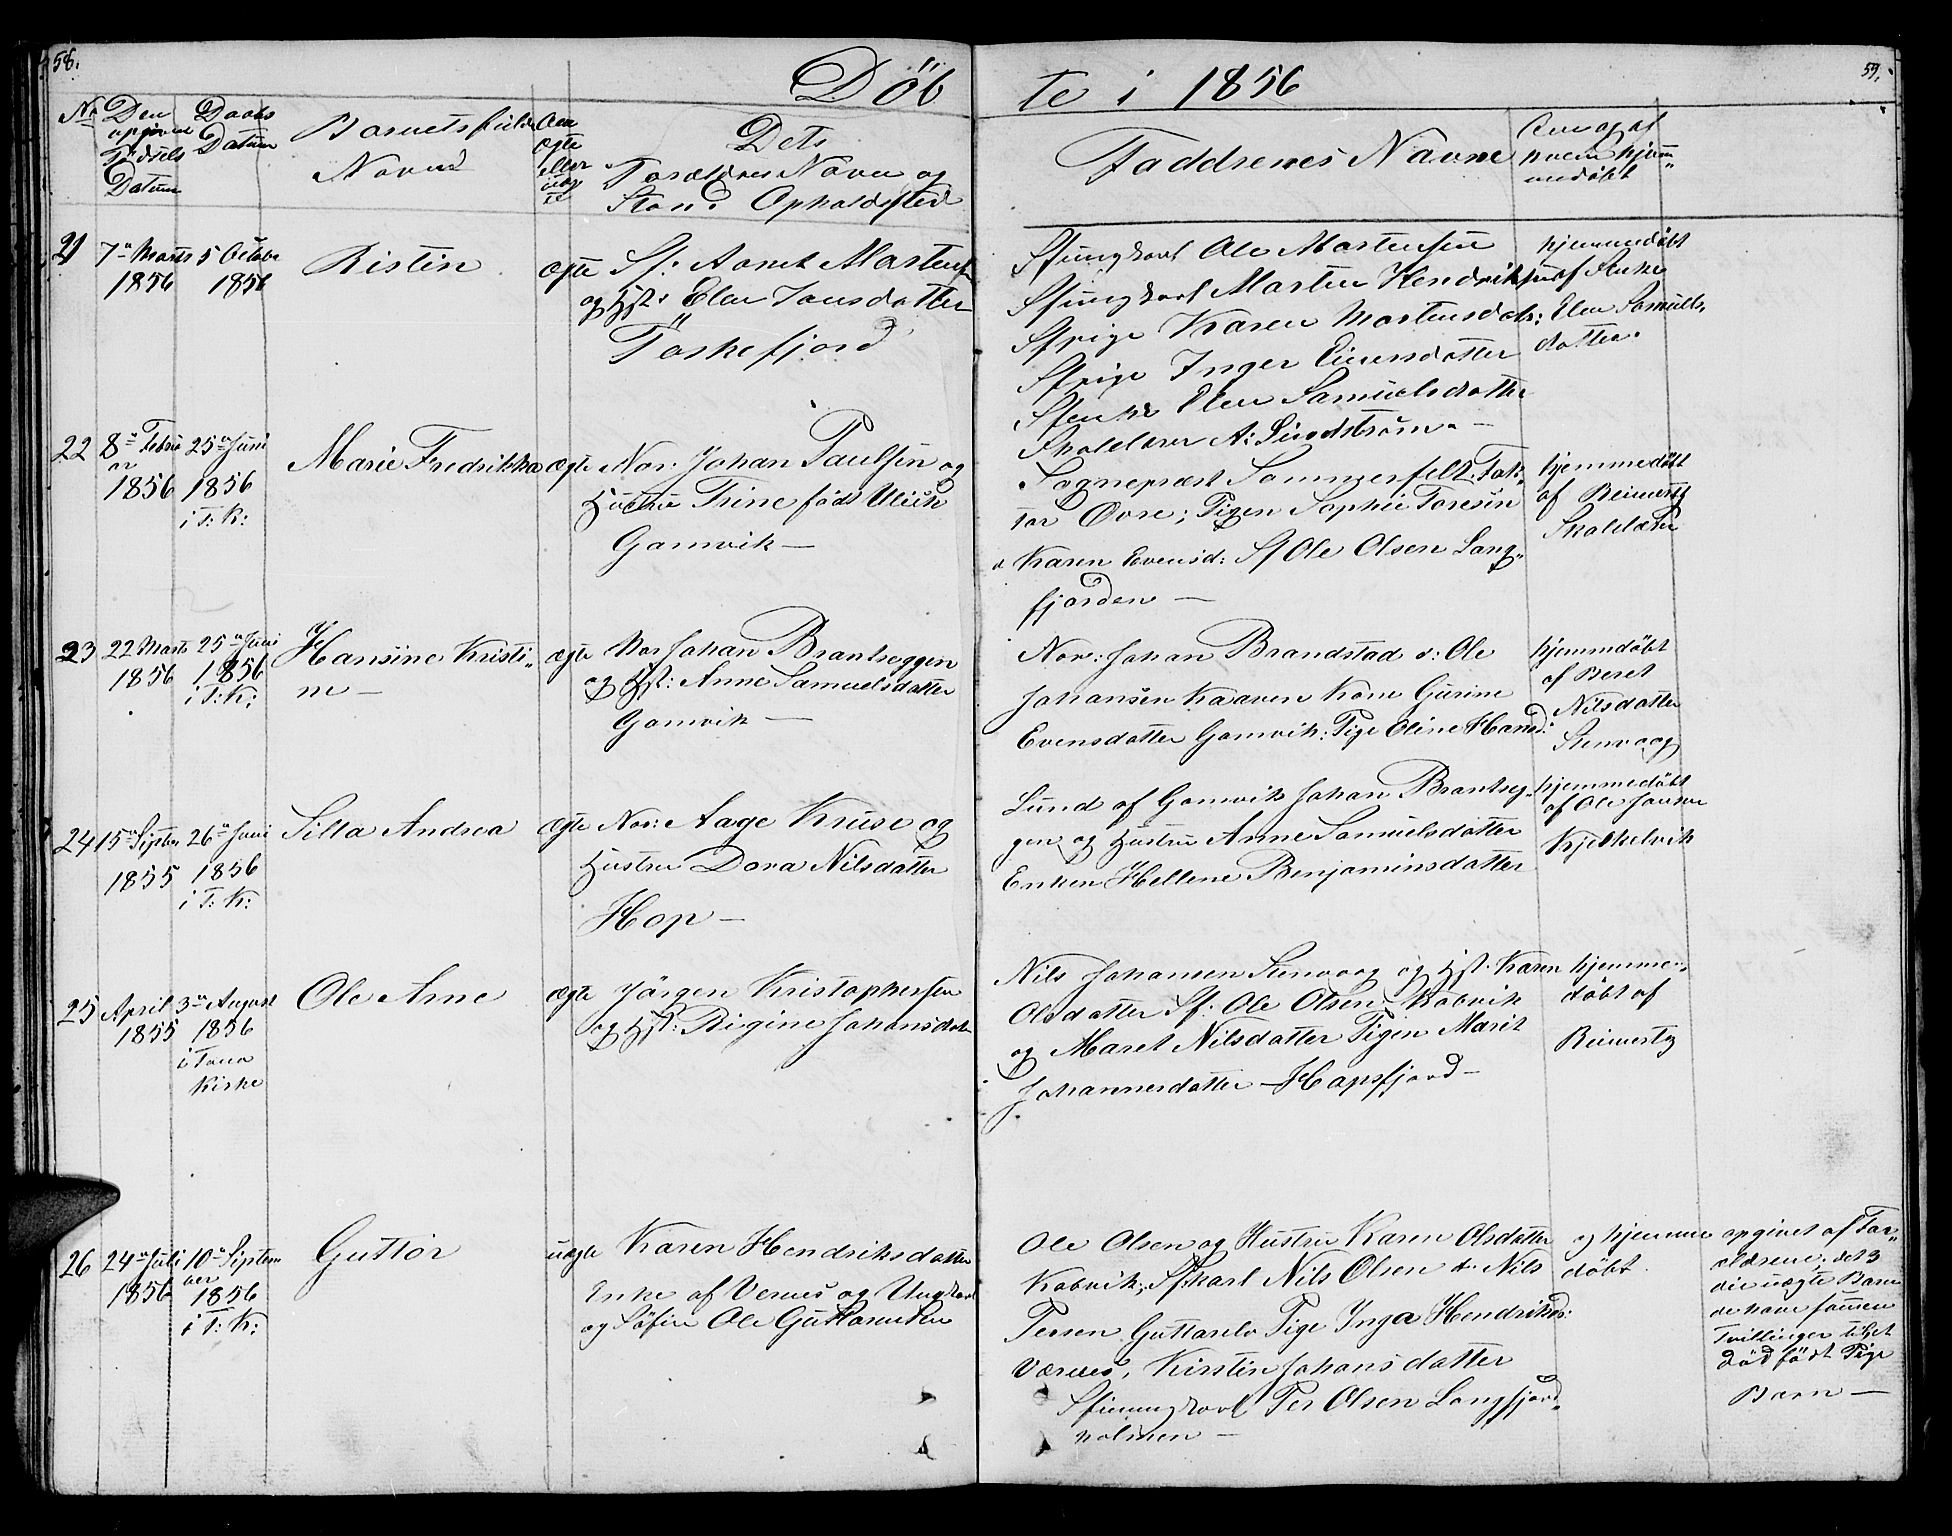 58.
Döb
te i 1856
59.
No
Den
opgivne
Födsels
Datum
Daabs
Datum
Barnets fulde
Navn
Om
ægte
eller
uæg
te
Dets
Forældres Navn og
Stand Opholdssted
Faddrenes Navne
Om og af
hvem hjem
medöbt
21 7de Marts 5 Octobr
1856 1856
Ristin
ægte Sf: Aamet Martens
og Hst: Elen Jonsdatter
Törkefjord
Sfungkarl Ole Martensen
Sfungkarl Marten Hendriksen
Sfpige Karen Martensdatr:
Sfpige Inger Einersdatter
Sfenke Elen Samuelsdatter
Skolelærer A: Lindström -
hjemmedöbt
af Enke
Elen Samuels
datter.
22 8de Februar 25de Juni
1856 1856
i T: K:
Marie Fredrikka
ægte Nor: Johan Paulsen og
Hustru Trine föd Ulich
Gamvik -
Sognepræst Sommerfelt, Fak
tor Övre; Pigen Sophie Foresen
Karen Evensd: Sf Ole Olsen Lang
fjorden -
hjemmedöbt
af Reimertz
Skolelærer
23 22 Marts 25de Juni
1856 1856
i T: K:
Hansine Kristi
ne -
ægte Nor Johan Brantseggen
og Hst: Anne Samuelsdatter
Gamvik -
Nor: Johan Brandstad o: Ole
Johansen Kaaven Kone Gurine
Evensdatter Gamvik: Pige Oline Hansd:
hjemmdöbt
af Beret
Nilsdatter
Stenvaag
24 15de Septbr 26de Juni
1855 1856
i T: K:
Silla Andrea
ægte Nor: Aage Kruse og
Hustru Dora Nilsdatter
Hop -
Lund af Gamvik Johan Brantseg
gen og Hustru Anne Samuelsdatter
Enken Hellene Benjaminsdatter
hjemmedöbt
af Ole Jonsen
Kjelkelvik
25 April 3de August
1855 1856
i Tana
Kirke
Ole Arne
ægte Jörgen Kristophersen
og Hst: Rigine Johansdat
Nils Johansen Stenvaag og Hst. Karen
Olsdatter Sf: Ole Olsen Kobvik
og Maret Nilsdatter Pigen Marit
Johannesdatter - Hopsfjord -
hjemme
döbt af
Reimertz
26 24de Juli 10de Septem
ber
1856 1856
i T: K:
Guttor
uægte Karen Hendriksdatter
Enke af Vernes og Ungkarl
og Söfin Ole Guttormsen
Ole Olsen og Hustru Karen Olsdatter
Kobvik, Sfkarl Nils Olsen & Nils
Persen Guttorelv Pige Inga Hendriksd:
Værnes, Kirstin Johansdatter
Sfinungkarl Per Olsen Langfjord
holmen -
og hjemme
döbt
opgivet af For
ældrene; det 3
die uægte Barn
de have sammen
Tvillinger tilhet
död födt Pige
Barn -